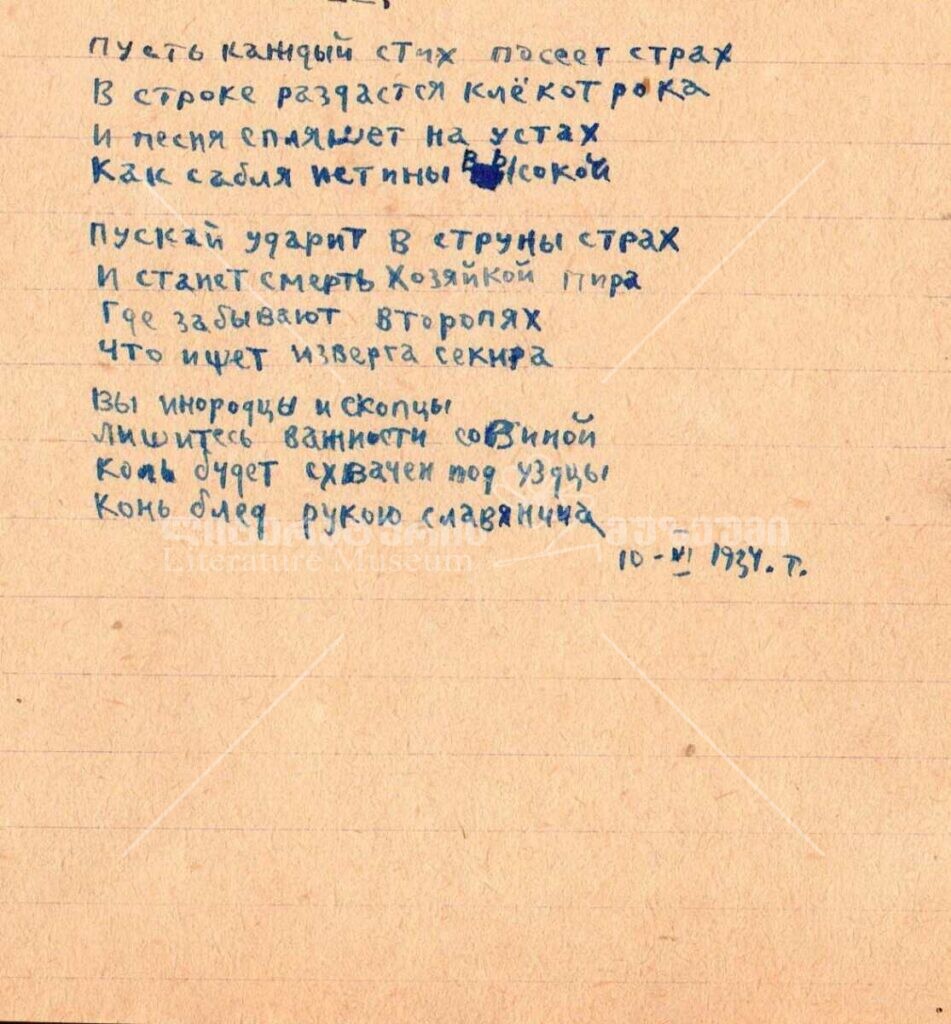 Пусть каждый стих посеет страх
В строке раздастся клёкот рока
И песня спляшет на устах
Как сабля истины высокой
Пускай ударит в струны страх
И станет смерть Хозяйкой пира
Где забывают второпях
Что ищет изверга секира
Вы инородцы и скопцы
Лишитесь важности совиной
Коль будет схвачен под уздцы
Конь блед рукою славянина
10-VI 1934. г.
ლიტერატურის მუზეუმი
Literature Museum